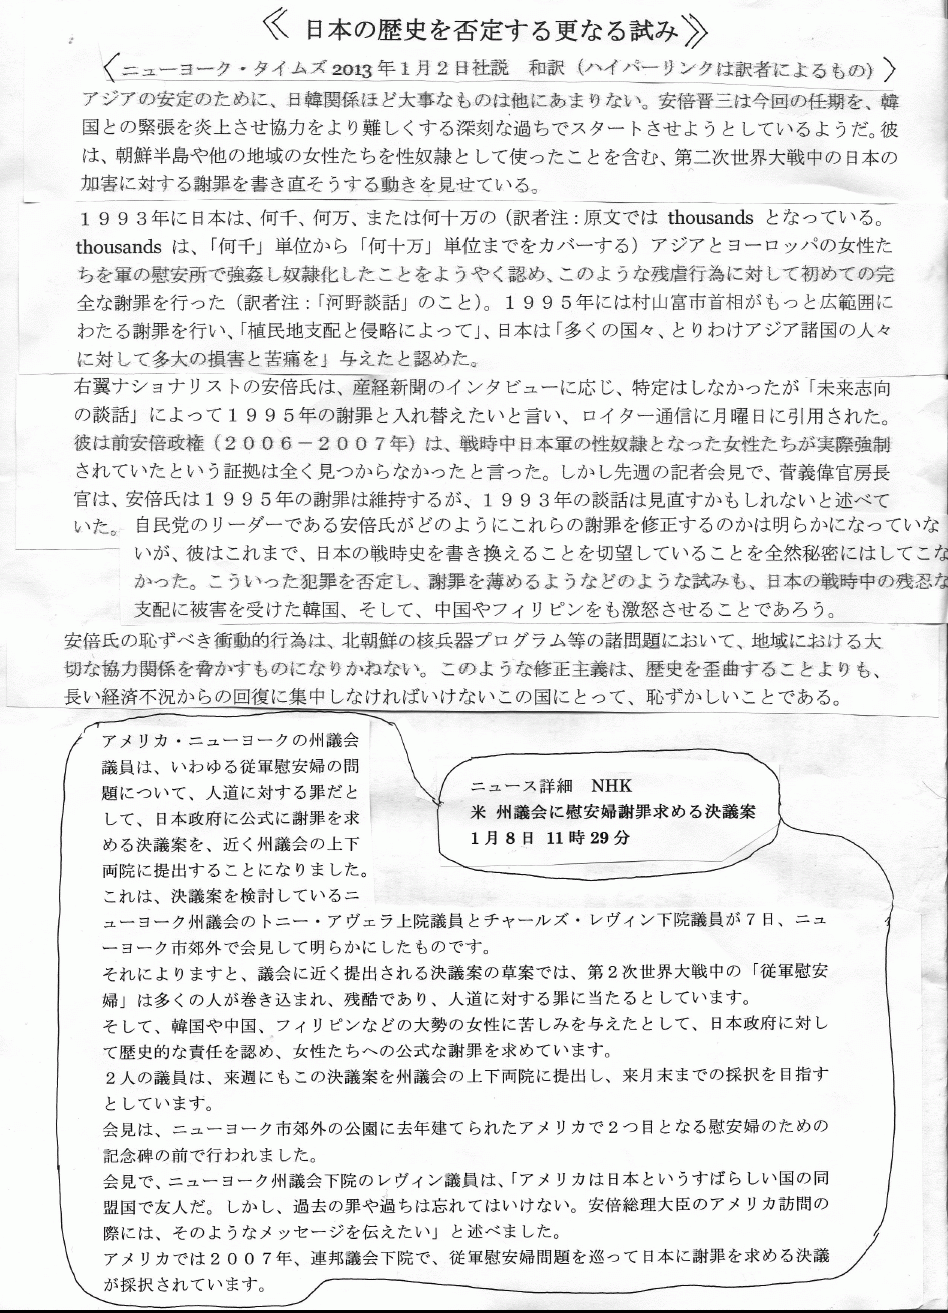 ≪ 日本の歴史を否定する更なる試み≫
〈ニューヨーク・タイムズ 2013 年１月２日社説　和訳（ハイパーリンクは訳者によるもの）〉
アジアの安定のために、日韓関係ほど大事なものは他にあまりない。安倍晋三は今回の任期を、韓
国との緊張を炎上させ協力をより難しくする深刻な過ちでスタートさせようとしているようだ。彼
は、朝鮮半島や他の地域の女性たちを性奴隷として使ったことを含む、第二次世界大戦中の日本の
加害に対する謝罪を書き直そうする動きを見せている。
１９９３年に日本は、何千、何万、または何十万の（訳者注：原文では thousands となっている。
thousands は、「何千」単位から「何十万」単位までをカバーする）アジアとヨーロッパの女性た
ちを軍の慰安所で強姦し奴隷化したことをようやく認め、このような残虐行為に対して初めての完
全な謝罪を行った（訳者注：「河野談話」のこと）。１９９５年には村山富市首相がもっと広範囲に
わたる謝罪を行い、「植民地支配と侵略によって」、日本は「多くの国々、とりわけアジア諸国の人々
に対して多大の損害と苦痛を」与えたと認めた。
右翼ナショナリストの安倍氏は、産経新聞のインタビューに応じ、特定はしなかったが「未来志向
の談話」によって１９９５年の謝罪と入れ替えたいと言い、ロイター通信に月曜日に引用された。
彼は前安倍政権（２００６－２００７年）は、戦時中日本軍の性奴隷となった女性たちが実際強制
されていたという証拠は全く見つからなかったと言った。しかし先週の記者会見で、菅義偉官房長
官は、安倍氏は１９９５年の謝罪は維持するが、１９９３年の談話は見直すかもしれないと述べて
いた。 自民党のリーダーである安倍氏がどのようにこれらの謝罪を修正するのかは明らかになっていな
いが、彼はこれまで、日本の戦時史を書き換えることを切望していることを全然秘密にはしてこな
かった。こういった犯罪を否定し、謝罪を薄めるようなどのような試みも、日本の戦時中の残忍な
支配に被害を受けた韓国、そして、中国やフィリピンをも激怒させることであろう。
安倍氏の恥ずべき衝動的行為は、北朝鮮の核兵器プログラム等の諸問題において、地域における大
切な協力関係を脅かすものになりかねない。このような修正主義は、歴史を歪曲することよりも、
長い経済不況からの回復に集中しなければいけないこの国にとって、恥ずかしいことである。
ニュース詳細　NHK
米 州議会に慰安婦謝罪求める決議案
１月８日 11 時 29 分
アメリカ・ニューヨークの州議会
議員は、いわゆる従軍慰安婦の問
題について、人道に対する罪だと
して、日本政府に公式に謝罪を求
める決議案を、近く州議会の上下
両院に提出することになりました。
これは、決議案を検討しているニ
ューヨーク州議会のトニー・アヴェラ上院議員とチャールズ・レヴィン下院議員が７日、ニュ
ーヨーク市郊外で会見して明らかにしたものです。
それによりますと、議会に近く提出される決議案の草案では、第２次世界大戦中の「従軍慰安
婦」は多くの人が巻き込まれ、残酷であり、人道に対する罪に当たるとしています。
そして、韓国や中国、フィリピンなどの大勢の女性に苦しみを与えたとして、日本政府に対し
て歴史的な責任を認め、女性たちへの公式な謝罪を求めています。
２人の議員は、来週にもこの決議案を州議会の上下両院に提出し、来月末までの採択を目指す
としています。
会見は、ニューヨーク市郊外の公園に去年建てられたアメリカで２つ目となる慰安婦のための
記念碑の前で行われました。
会見で、ニューヨーク州議会下院のレヴィン議員は、「アメリカは日本というすばらしい国の同
盟国で友人だ。しかし、過去の罪や過ちは忘れてはいけない。安倍総理大臣のアメリカ訪問の
際には、そのようなメッセージを伝えたい」と述べました。
アメリカでは２００７年、連邦議会下院で、従軍慰安婦問題を巡って日本に謝罪を求める決議
が採択されています。